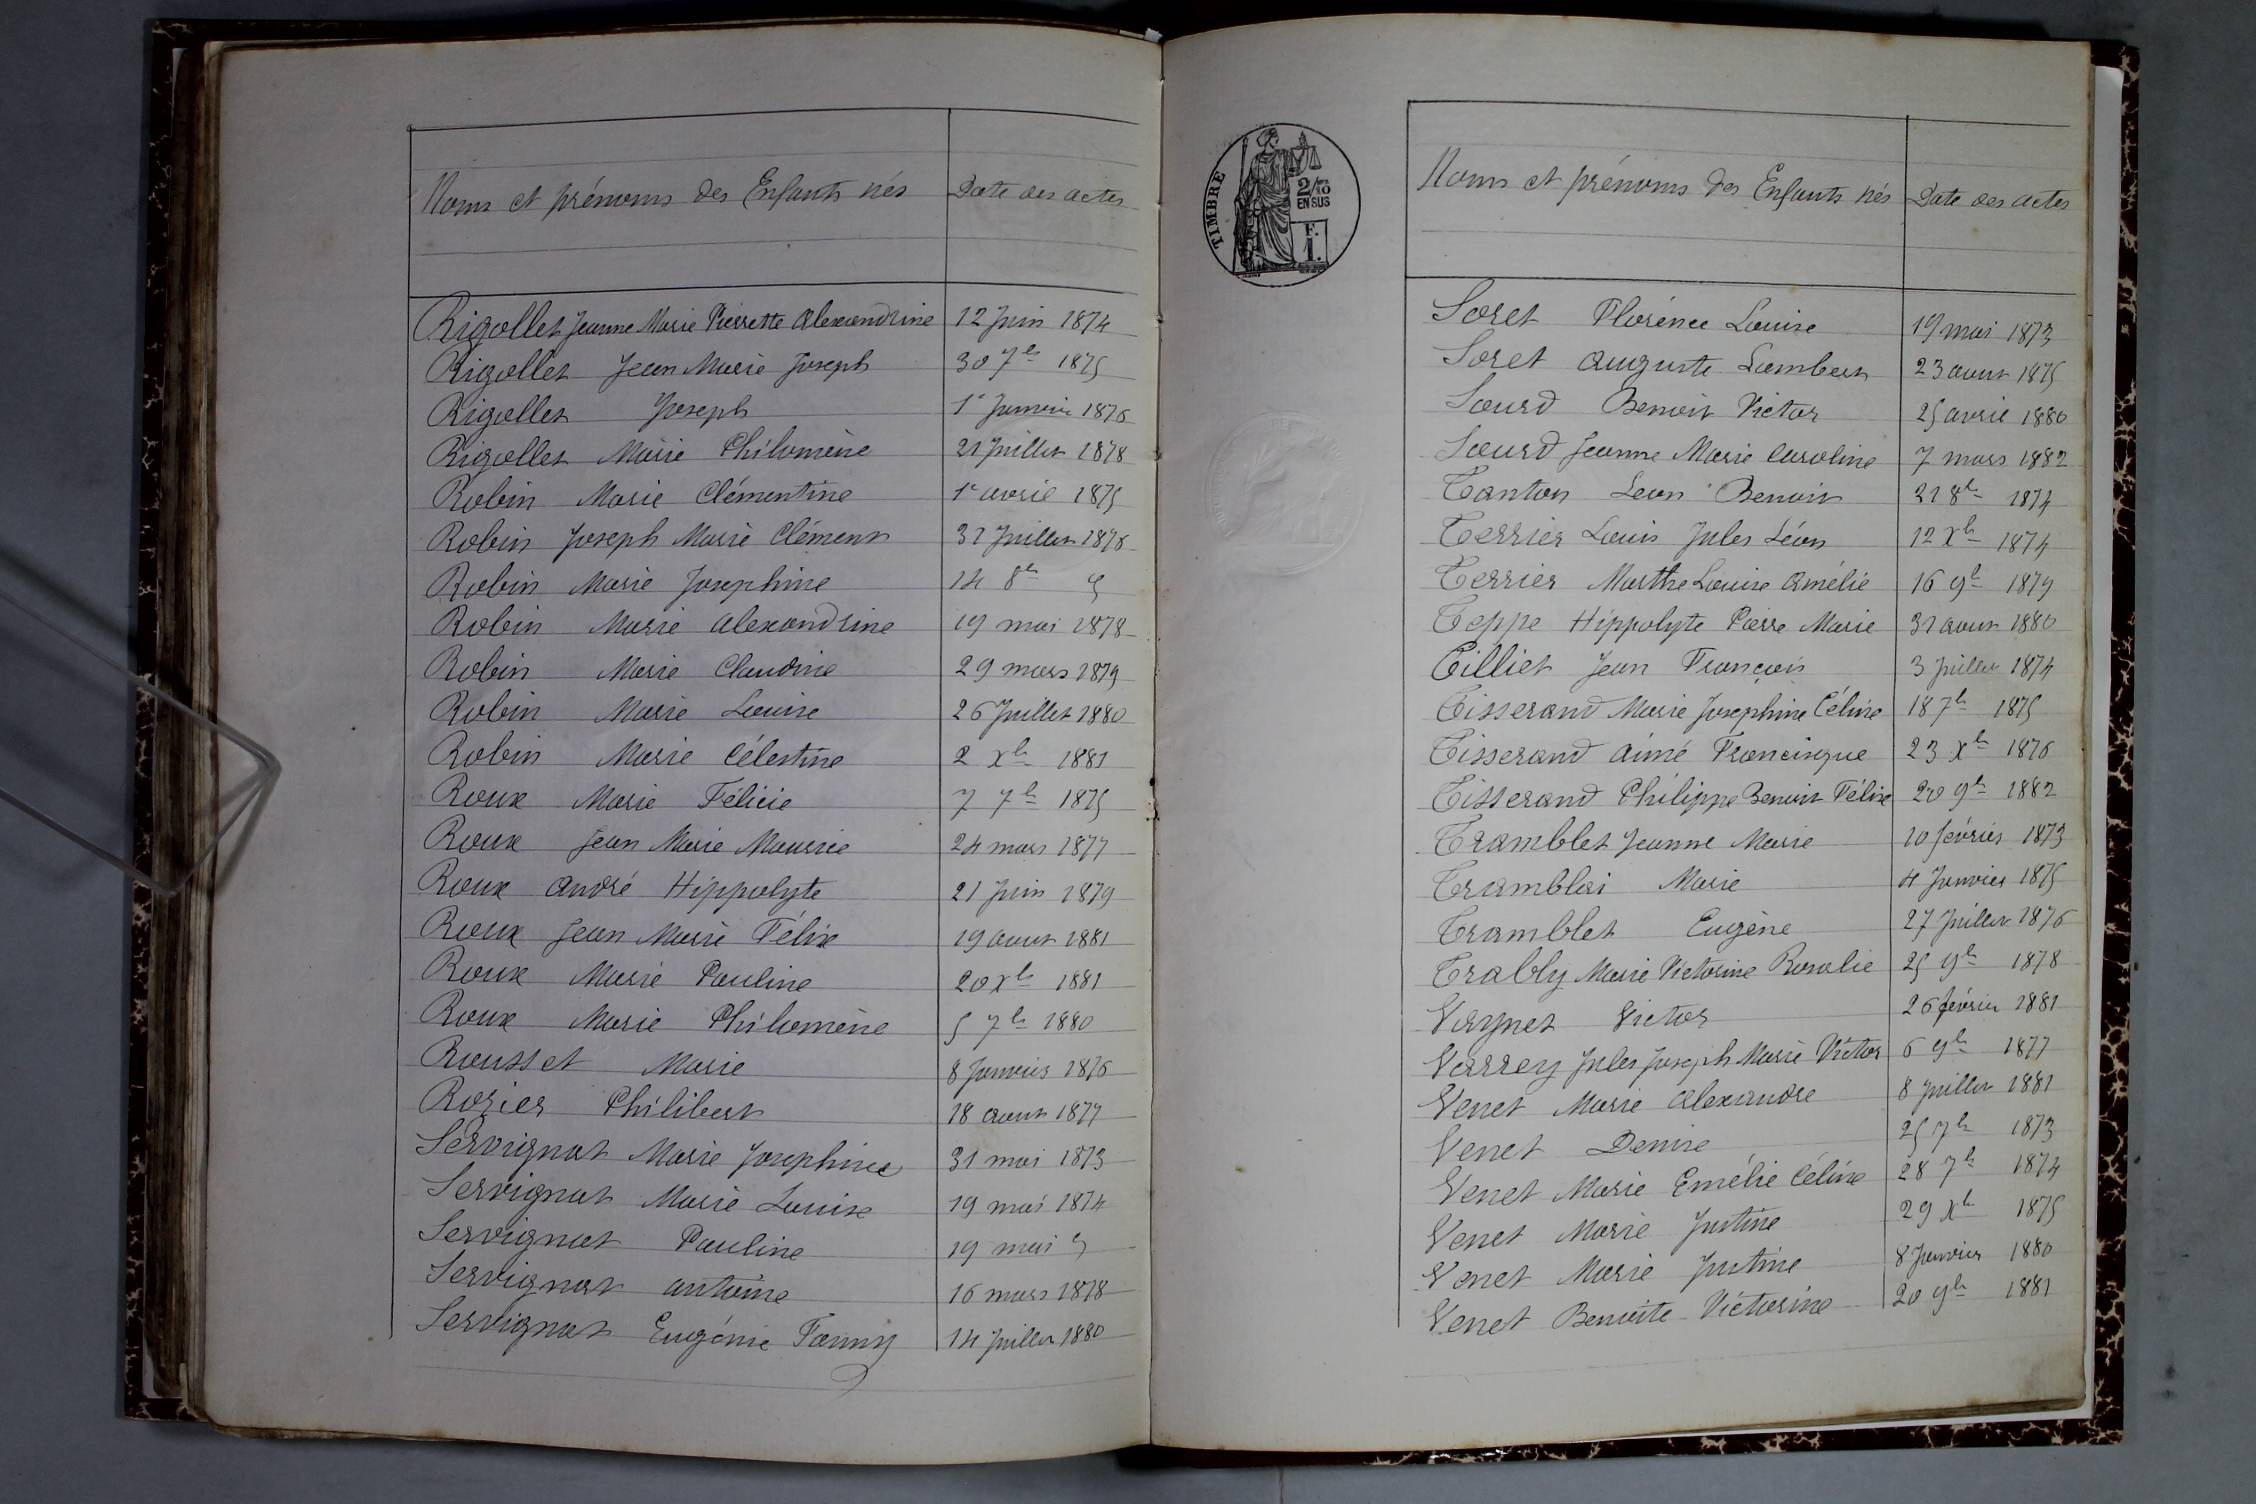 Noms et prénoms des Enfants nés Date des actes
Rigollet Jeanne Marie Pierrette Alexandrine 12 Juin 1874
Rigollet Jean Marie Joseph 30 7b 1875
Rigollet Joseph 1e Janvier 1876
Rigollet Marie Philomène 21 Juillet 1878
Robin Marie Clémentine 1e avril 1875
Robin Joseph Marie Clément 31 Juillet 1876
Robin Marie Josephine 14 8b
Robin Marie Alexandrine 19 mai 1878
Robin Marie Claudine 29 mars 1879
Robin Marie Louise 26 Juillet 1880
Robin Marie Célestine 2 Xb 1881
Roux Marie Félicie 7 7b 1875
Roux Jean Marie Maurice 24 mars 1877
Roux André Hippolyte 21 Juin 1879
Roux Jean Marie Félix 19 aout 1881
Roux Marie Pauline 20 Xb 1881
Roux Marie Philomène 5 7b 1880
Rousset Marie 8 Janvier 1876
Rozier Philibert 18 aout 1877
Servignat Marie Josephine 31 mai 1873
Servignat Marie Louise 19 mai 1874
Servignat Pauline 19 mai
Servignat antoine 16 mars 1878
Servignat Eugénie Fanny 14 Juillet 1880
TIMBRE
2/10
EN SUS
F.
1.
Noms et prénoms des Enfants nés Date des actes
Soret Florénce Louise 19 mai 1873
Soret Auguste Lambert 23 aout 1875
Sourd Benoit Victor 25 avril 1880
Sourd Jeanne Marie Caroline 7 mars 1882
Tanton Leon Benoit 21 8b 1874
Terrier Louis Jules Léon 12 Xb 1874
Terrier Marthe Louise Amélie 16 9b 1879
Teppe Hippolyte Pierre Marie 31 aout 1880
Tilliet Jean François 3 Juillet 1874
Tisserand Marie Joséphine Céline 18 7b 1875
Tisserand Aimé Francisque 23 Xb 1876
Tisserand Philippe Benoit Félix 20 9b 1882
Tramblet Jeanne Marie 10 février 1873
Tramblai Marie 4 Janvier 1875
Tramblet Eugène 27 Juillet 1876
Trably Marie Victorine Rosalie 25 9b 1878
Vaynet Victor 26 février 1881
Varrey Jules Joseph Marie Victor 6 9b 1877
Venet Marie Alexandre 8 Juillet 1881
Venet Denise 25 7b 1873
Venet Marie Emélie Céline 28 7b 1874
Venet Marie Justine 29 Xb 1875
Venet Marie Justine 8 Janvier 1880
Venet Benoite Victorine 20 9b 1881